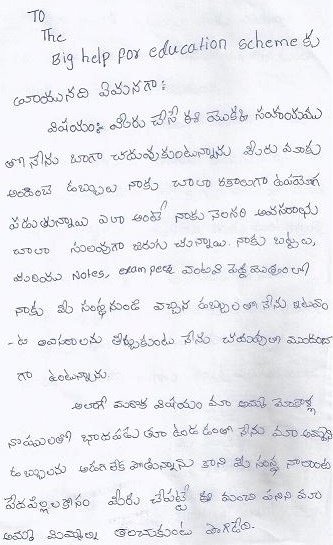 TO
The
Big help for education scheme కు
వ్రాయునది ఏమనగా :
విషయం :- మీరు చేసే ఈ యొక్క సహాయము
తో నేను బాగా చదువుకుంటున్నాను మీరు మాకు
అందించే డబ్బులు నాకు చాలా రకాలుగా ఉపయోగ
పడుతున్నాయి ఎలా అంటే నాకు నెలసరి అవసరాలు
చాలా సులువుగా జరుగు చున్నాయి. నాకు బట్టలు,
మరియు Notes, exam పీజు వంటివి పెద్ద మొత్తంలో
నాకు మీ సంస్థ నుండి వచ్చిన డబ్బులతో నేను ఇటువం
-టి అవసరాలను తీర్చుకుంటు నేను చదువులో ముందుం
గా ఉంటున్నాను.
అలాగే మరొక విషయం మా అమ్మ మోకాళ్ల
నొప్పులతో బాధపడుతూ ఉండడంతో నేను మా అమ్మని
డబ్బులను అడగలేక పోతున్నాను కాని మీ సంస్థ నాలాంటి
పేదపిల్లల కోసం మీరు చేపట్టే ఈ మంచి పనిని మా
అమ్మ మిమ్మల్ని తలచుకుంటు